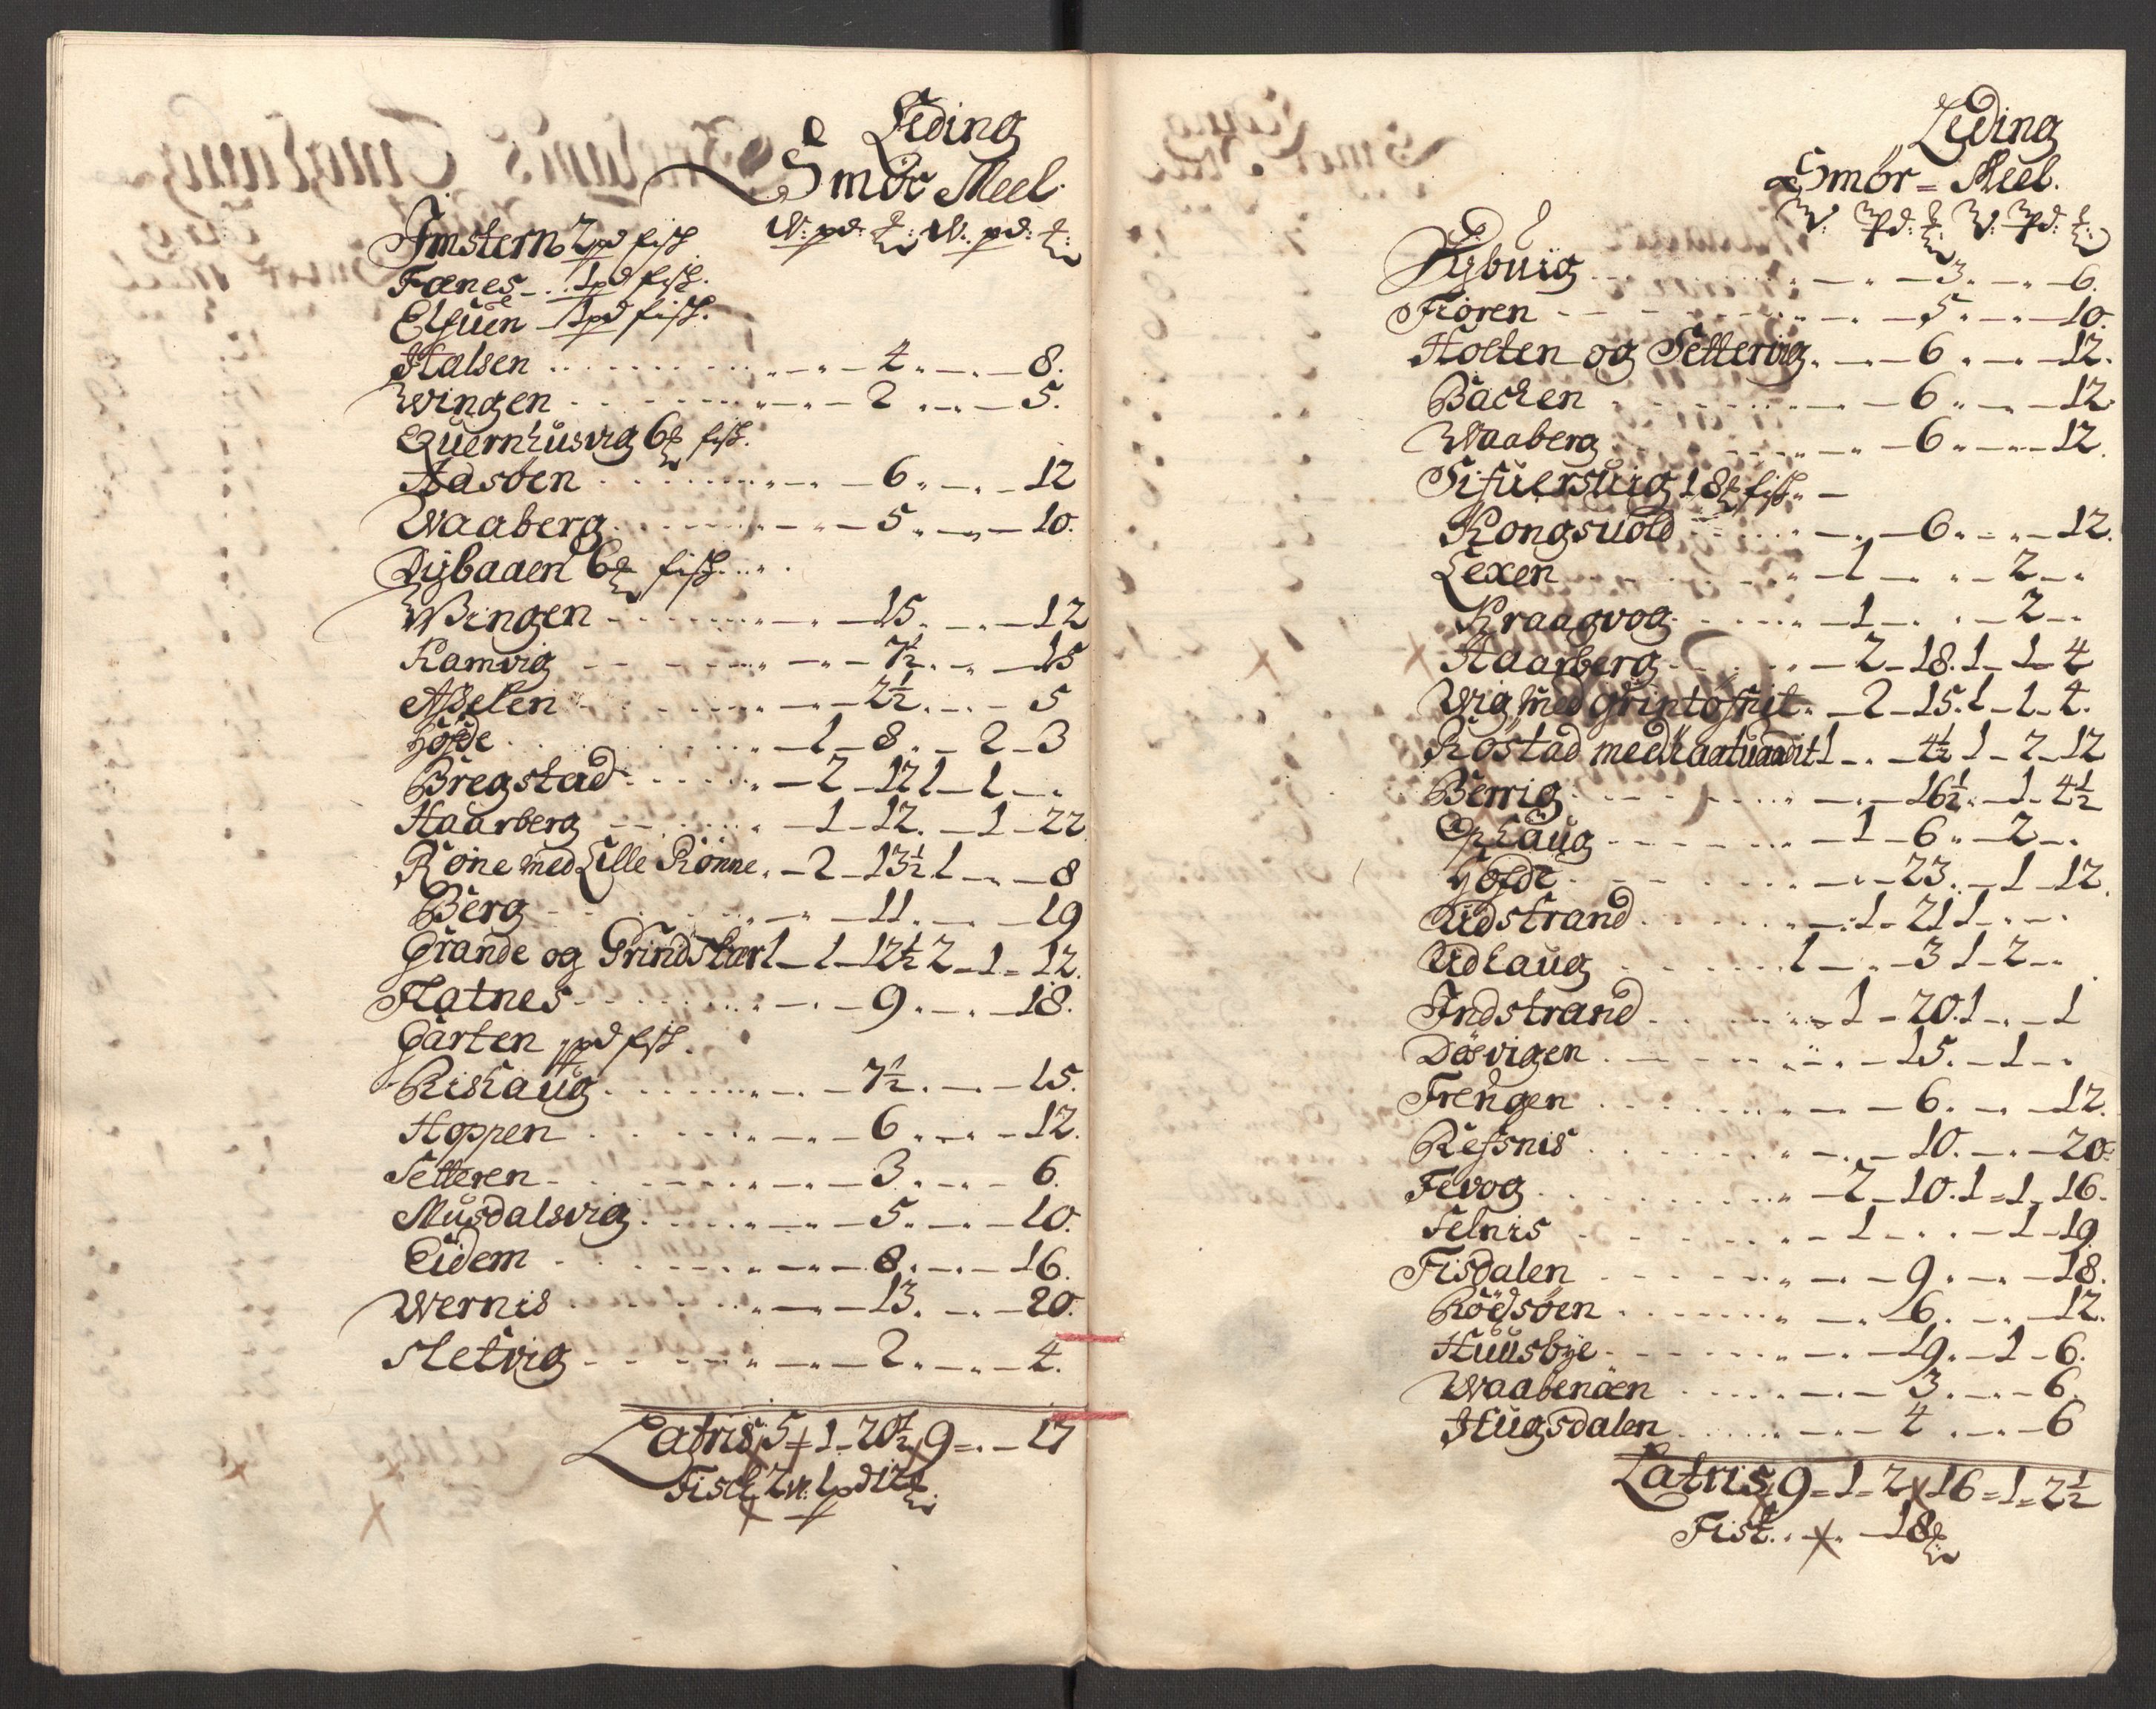 Leding
Smör Meel.
W: pd: ℔: W. pd: ℔:
Imstern 2 pd fisk
Fænes - . . 1 pd fisk.
Elsuen - 1 pd fisk.
Halsen . . . . - - " - 4 . - . - 8.
Wingen . . . . - - " - 2 . - " - 5.
Quernhusvig 6 ℔ fisk.
Aasben . . . . - - " - 6 " - " - 12
Waaberg . . . . - - " - 5 . - " - 10.
Dybaaen 6 ℔ fisk . . " .
Wingen . . . . - " - 15 . - " - 12
Ramvig - - . . - " - 7½ . - " - 15
Asselen . . . . - " - 2½ . - . - 5
Höfde . . . . - 1 - 8 . - 2 - 3
Bregstad . . . . " - 2 - 12 1 - 1 - .
Haarberg . . . . " - 1 - 12. - 1 - 22
Röne med Lille Rönne . - 2 - 13½ 1 - " - 8
Berg . . . . - " - 11 . - " - 19
Grande og Grindskær 1 - 1 - 12½ 2 - 1 - 12.
Flatnes . . . . - " - 9 . - " - 18.
Garten 1 pd fisk.
Rishaug . . . . - " - 7½ . - " - 15.
Hoppen . . . . - " - 6 . - " - 12.
Setteren . . . . - " - 3 . - " - 6.
Musdalsvig . . . . - " - 5. - " - 10.
Eidem . . . . - " - 8. - " - 16.
Wernis . . . . - " - 13. - " - 20.
Sletvig . . . . - " - 2 . - " - 4.
Latris 5 = 1 - 20½ 9 = . - 17
Fisk 2 W: 1 pd 12 ℔.
Leding
Smör = Meel.
W: pd: ℔: W: pd: ℔:
Dybvig . . . . " - " - 3 . - " - 6.
Fioren - - . . . - " - 5 . - " - 10.
Holten og Settervig . - " - 6 . - " - 12.
Backen . . . . - " - 6 " - " - 12.
Waaberg . . . . - " - 6 " - " - 12.
Sifuersvig 18 ℔ fisk. " -
Kongsuold . . . . - " - 6 . - " - 12.
Lexen . . . . " - 1 - " . - 2 - "
Kraagvog . . . . " - 1 - . . - 2 - "
Haarberg . . . . " - 2 - 18. 1 - 1 - 4
Wig med Grintofnit . - 2 - 15. 1 - 1 - 4.
Röstad med Kaatuadit 1 - " - 4½ 1 - 2 - 12
Berrig . . . . - " - 16½ " - 1 - 4½
Ophaug . . . . - 1 - 6 " - 2 - "
Höfde . . . . - " - 23. - 1 - 12.
Udstrand . . . . " - 1 - 21 1 - " - "
Udhaug . . . . 1 - " - 3 1 - 2 - "
Indstrand . . . . " - 1 - 20. 1 - " - 1
Dösvigen . . . . " - 15. - 1 - "
Frengen . . . . - " - 6. - " - 12.
Refsnis . . . . " - " - 10. - " - 20.
Fevog . . . . " - 2 - 10. 1 = 1 - 16.
Selnis . . . . - 1 - " . - 1 - 19.
Fisdalen . . . . " - " - 9 . - " - 18.
Rödsöen . . . . - " 6. - " - 12.
Huusbye . . . . " - " - 19. - 1 - 6.
Waabenöen . . . . - " - 3. - " - 6.
Hugsdalen . . . . - " - 4 . - " - 6
Latris 9 = 1 = 2 16 = 1 = 2½
Fisk . . " . - 18 ℔